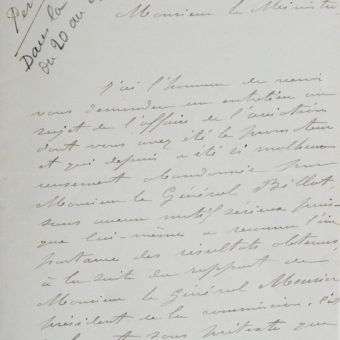 Per
Dans la
du 20 au
Monsieur le Ministre
J'ai l'honneur de venir
vous demander un entretien au
sujet de l'affaire de l'aviation
dont vous avez été le promoteur
et qui depuis a été si malheu
reusement abandonnée par
Monsieur le Général Billot,
sans aucun motif sérieux puis-
que lui-même a reconnu l'im
portance des résultats obtenus,
à la suite du rapport de
Monsieur le Général Mensier
président de la commission. C'est
sous prétexte que